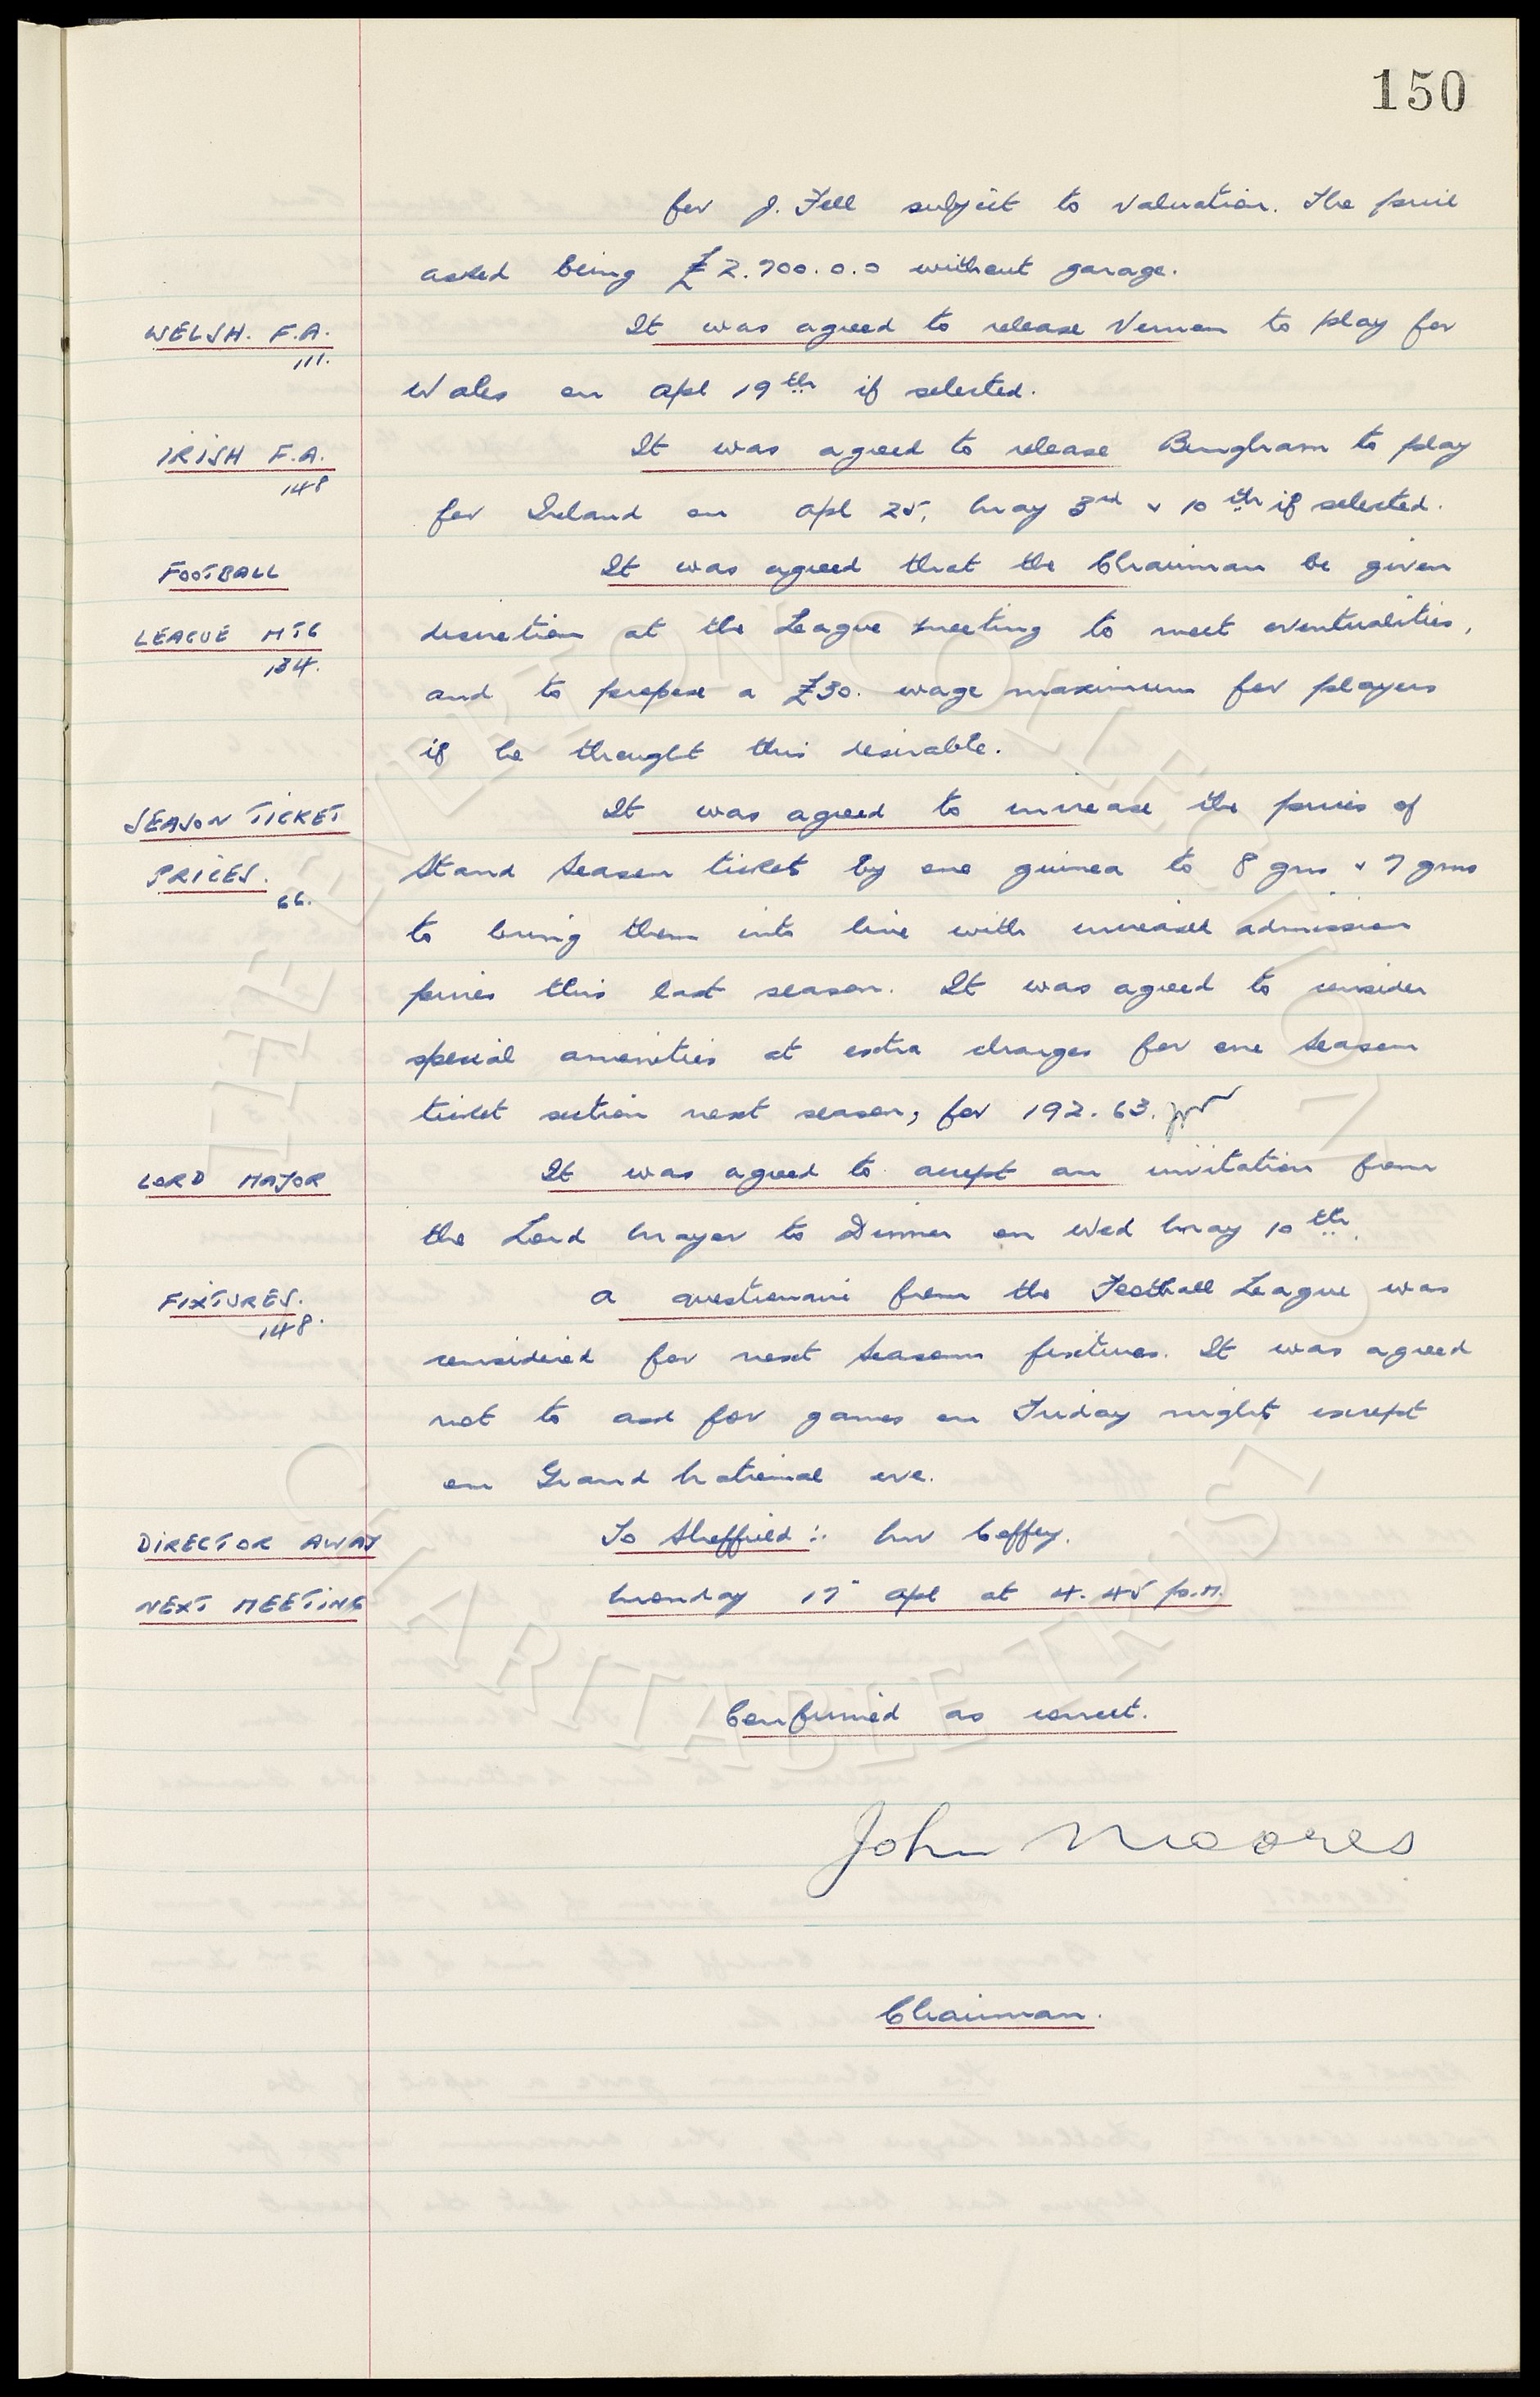 150
for J. Fell subject to valuation. The price
asked being £2.700.0.0 without garage.
WELSH. F.A. It was agreed to release Vernon to play for
111.
Wales on Apl 19th if selected.
IRISH F.A. It was agreed to release Bingham to play
148
for Ireland on Apl 25, May 3rd & 10th if selected.
FOOTBALL It was agreed that the Chairman be given
LEAGUE MTG discretion at the League meeting to meet eventualities,
134.
and to propose a £30. wage maximum for players
if he thought this desirable.
SEASON TICKET It was agreed to increase the prices of
PRICES. Stand Season ticket by one guinea to 8 gns & 7 gns
66.
to bring them into line with increased admission
prices this last season. It was agreed to consider
special amenities at extra charges for one Season
ticket section next season, for 192.63.
LORD MAYOR It was agreed to accept an invitation from
the Lord Mayor to Dinner on Wed May 10th.
FIXTURES. A questionaire from the Football League was
148.
considered for next Seasons fixtures. It was agreed
not to ask for games on Friday nights except
on Grand National eve.
DIRECTOR AWAY To Sheffield :. Mr Coffey.
NEXT MEETING Monday 17" Apl at 4.45 p.m.
Confirmed as correct.
John Moores
Chairman.